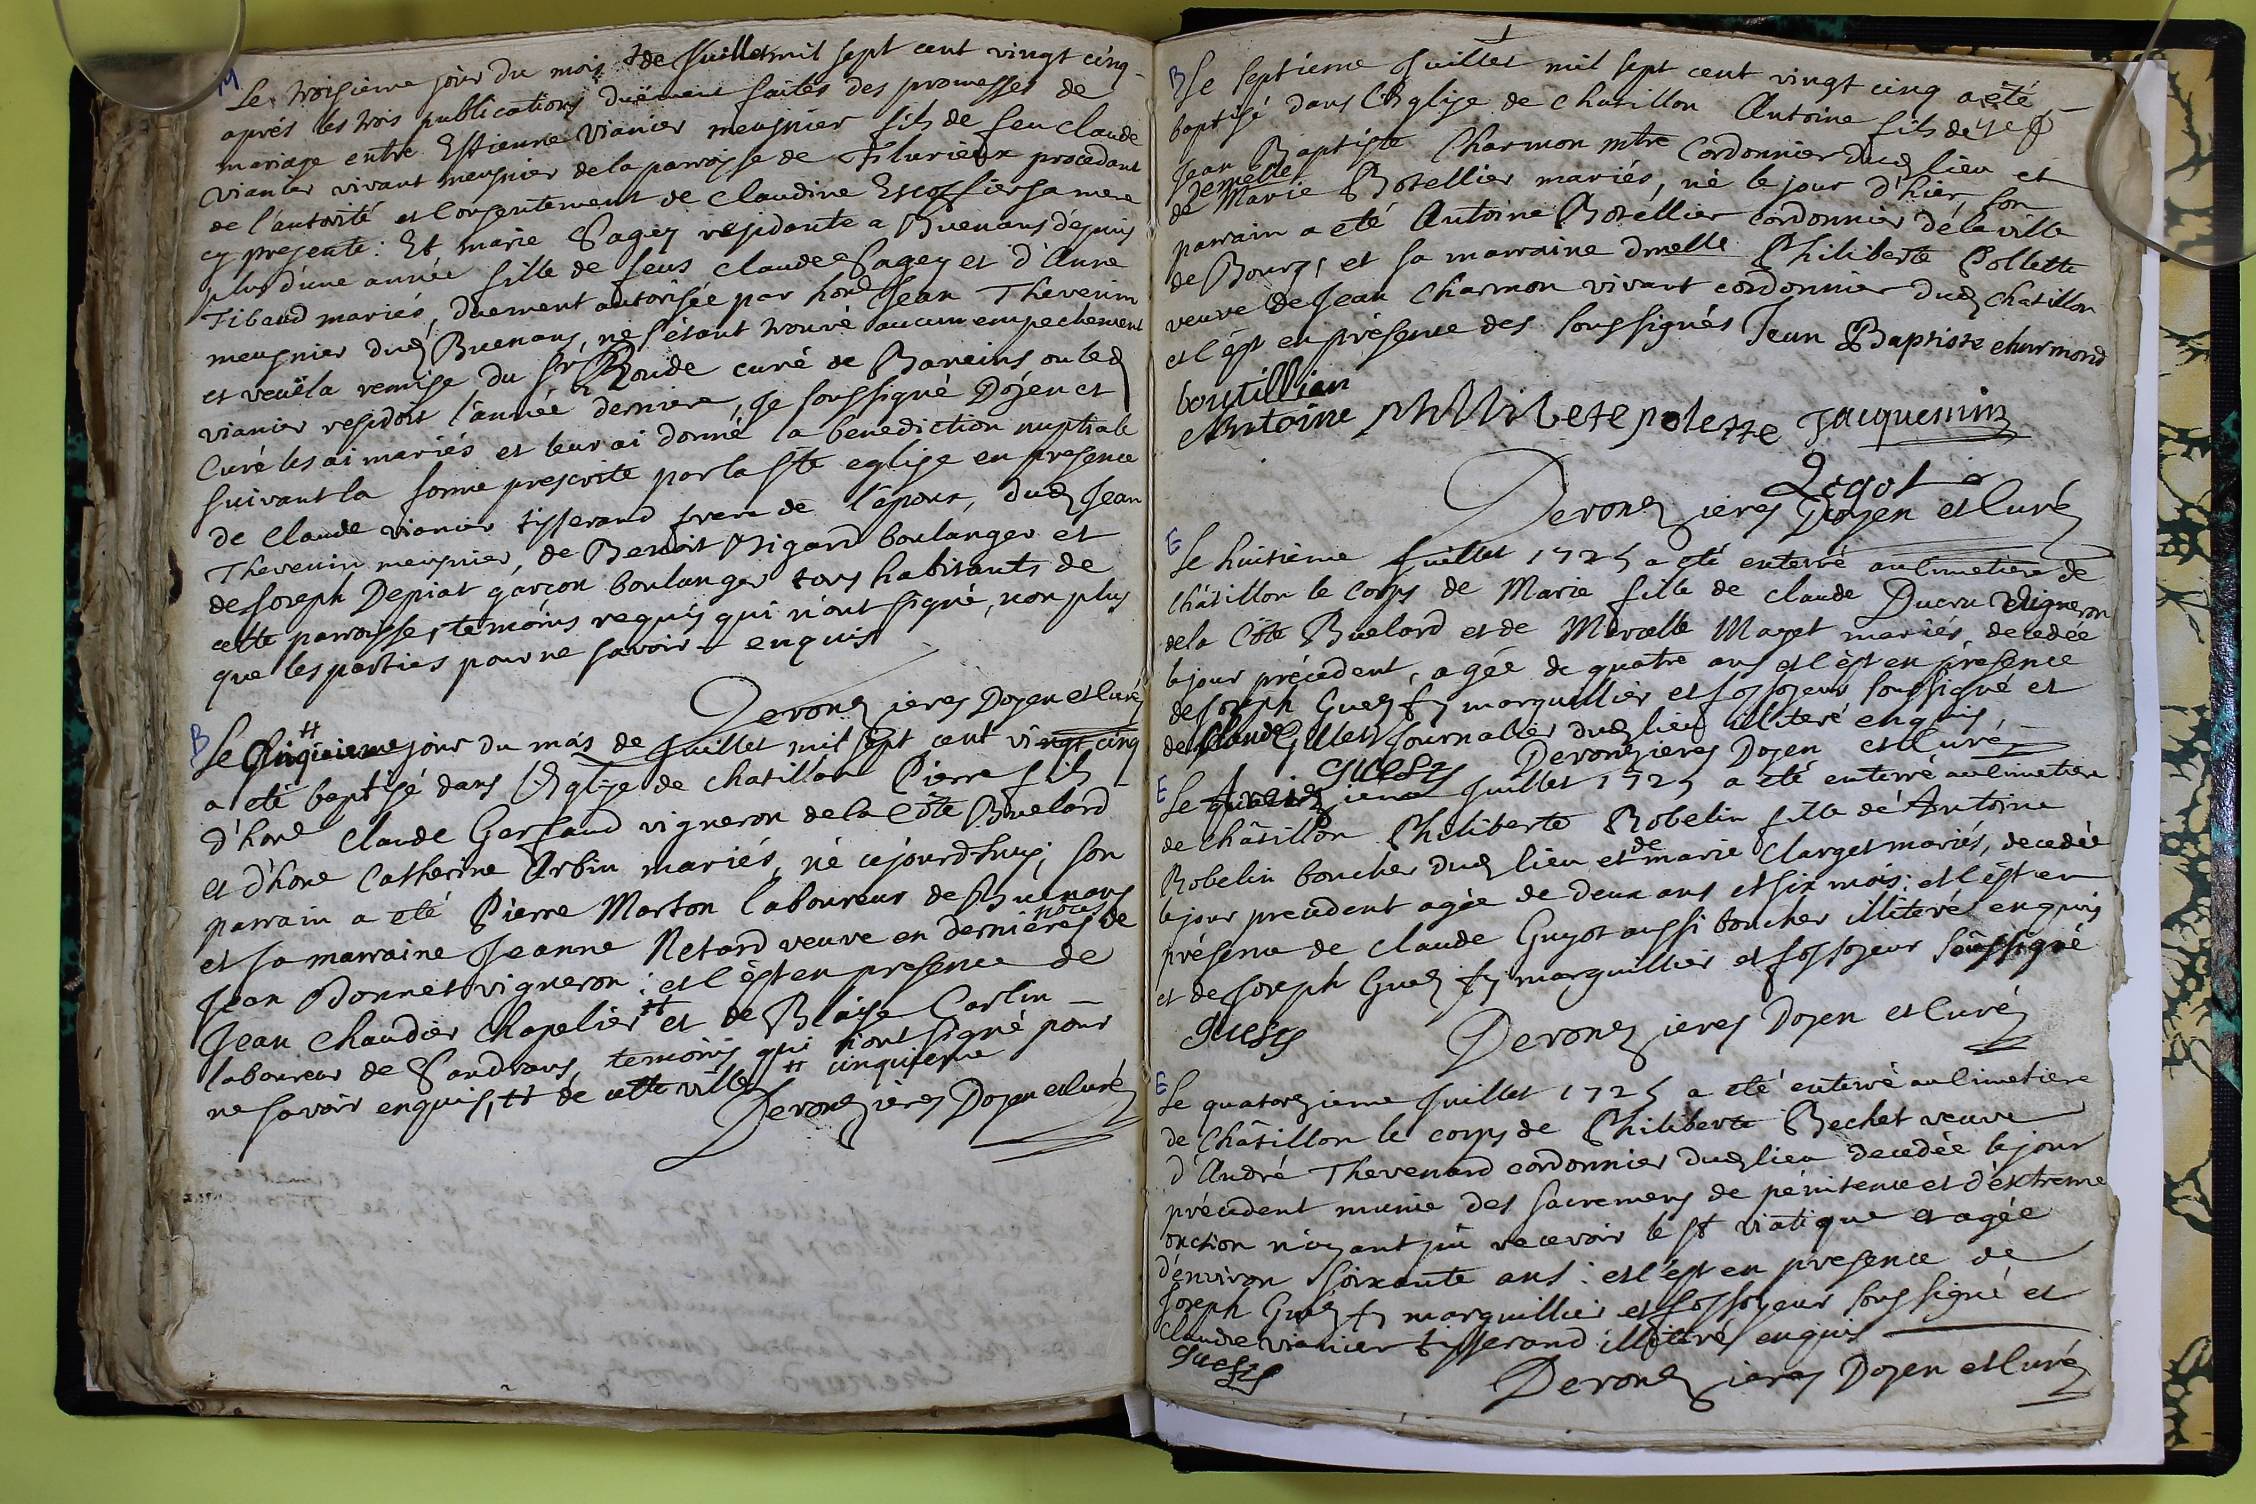 M
Le troisieme jour du mois de Juillet mil sept cent vingt cinq
aprés les trois publications duëment faites des promesses de
mariage entre Estienne Vianier meusnier fils de feu Claude
Vianier vivant meusnier de la parroisse de Flurieux procedant
de l'autorité et consentement de Claudine Escoffier sa mere
cy presente: Et marie Sagey residante a Buenans depuis
plus d'une année fille de feus Claude Sagey et d'Anne
Tibaud mariés, duement autorisée par hond Jean Thevenin
meusnier dud Buenans, ne s'étant trouvé aucun empechement
et veuë la remise du Sr Roude curé de Baneins ou led
vianier residoit l'année derniere, Je soussigné Doÿen et
Curé les ai mariés et leur ai donné la benediction nuptiale
suivant la forme prescrite par la Ste eglise en presence
de Claude vianier tisserand frere de l'époux, dud Jean
Thevenin meusnier, de Benoit Bigard boulanger et
de Joseph Depiat garçon boulanger tous habitants de
cette parroisse, temoins requis qui n'ont signé, non plus
que les parties pour ne savoir enquis
Deronzieres Doyen et Curé
B
Le Cinquieme jour du mois de Juillet mil sept cent vingt cinq
a eté baptisé dans l'Eglise de chatillon Pierre fils
d'hone Claude Gerfaud vigneron de la Côte Buelard
et d'hone Catherine Arbin mariés, né cejourd'huy; son
parrain a eté Pierre Marton laboureur de Buenans
noces
et sa marraine Jeanne Retard veuve en dernières de
Jean Bonnet vigneron: et l'èst en presence de
Jean Chaudier Chapelier ++ et de Blaise Carlin
laboureur de Sandrans, temoins qui n'ont signé pour
ne savoir enquis, ++ de cette ville ++ cinquieme
Deronzieres Doyen et Curé
B
Le septiéme Juillet mil sept cent vingt cinq a eté
baptisé dans l'Eglise de chatillon Antoine fils de
Jean Baptiste Charmon mtre Cordonnier dud lieu et
demelle
de Marie Botellier mariés, né le jour d'hier, son
parrain a eté Antoine Botéllier cordonnier dé la ville
de Bourg, et sa marraine dmelle Philiberte Pollette
veuve de Jean Charmon vivant cordonnier dud Chatillon
et l'èst en présence des soussignés Jean Baptiste charmond
boutillier
Antoine philiberte polette Jacquemin
Legot
Deronzieres Doyen et Curé
E
Le huitième Juillet 1725 a eté enterré au Cimetière de
Châtillon le Corps de Marie fille de Claude Ducru Vigneron
de la Côte Buelard et de Marcelle Maget mariés, decedée
le jour précedent, agée de quatre ans et l'èst en présence
de Joseph Guez marguillier et fossoyeur soussigné et
de Claude Gillet Journalier dud lieu illiteré enquis,
Deronzieres Doyen et Curé
E
Le juillet 1725 a eté enterré au Cimetiere
de Châtillon Philiberte Robelin fille de Antoine
Robelin boucher dud lieu et de marie Clarget mariés, decedée
le jour precedent agée de deux ans et six mois: et l'èst en
présence de Claude Guyot aussi boucher illiteré enquis
et de Joseph Guez marguillier et fossoyeur soussigné
Deronzieres Doyen et Curé
E
Le quatorzieme Juillet 1725 a eté enterré au Cimetiere
de Châtillon le corps de Philiberte Bechet veuve
d'André Thevenard cordonnier dud lieu decedée le jour
précedent munie des sacremens de pénitence et d'extreme
onction n'ayant pû recevoir le St viatique et agée
d'environ soixante ans: et l'èst en presence de
Joseph Guez marguillier et fossoyeur soussigné et
Claude vianier tisserand illiteré enquis
Deronzieres Doyen et Curé